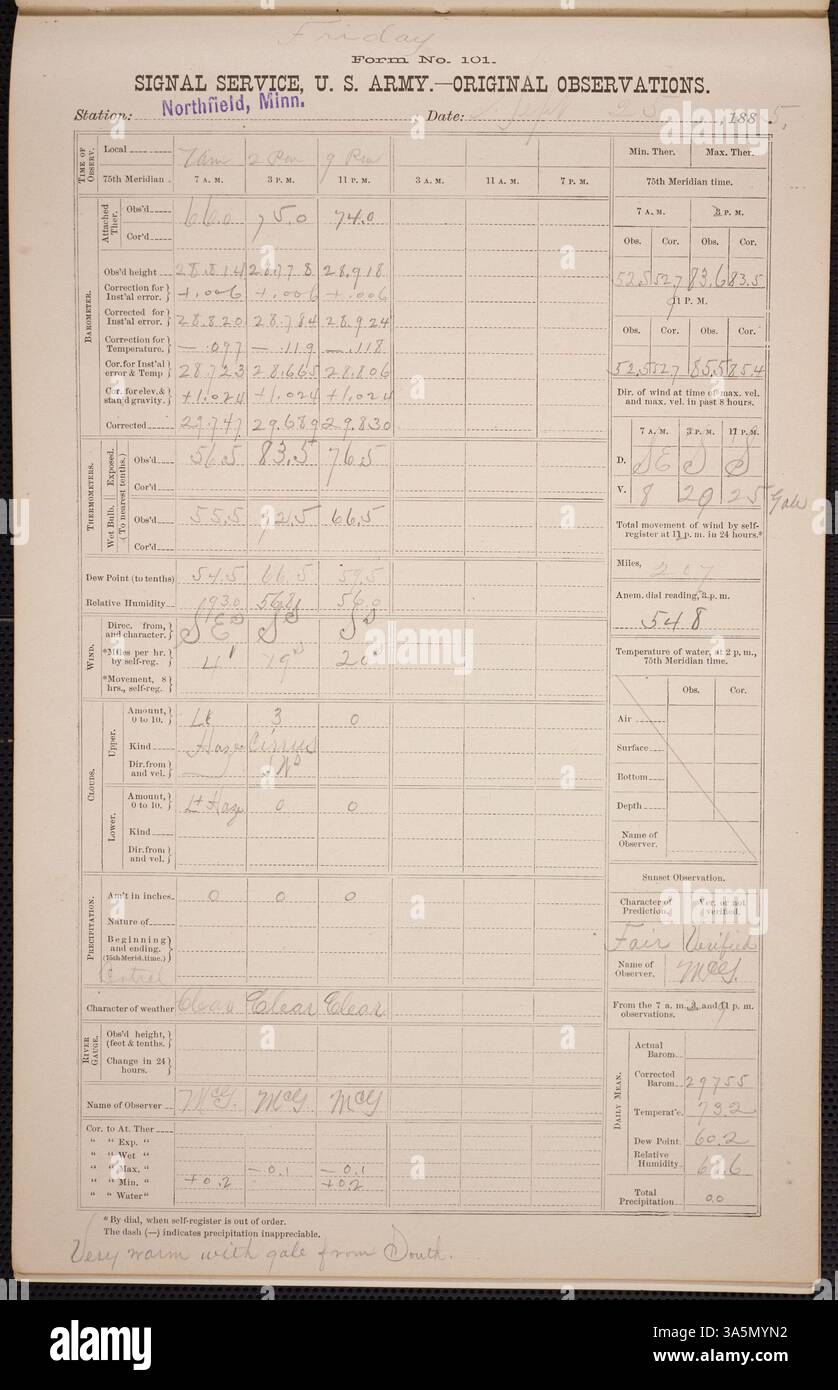 Friday
Form No. 101.
SIGNAL SERVICE, U. S. ARMY.—ORIGINAL OBSERVATIONS.
Station: Northfield, Minn. Date: Sept 25, 1885,
TIME OF OBSERV. Local 7 am 2 Pm 9 Pm
75th Meridian 7 A. M. 3 P. M. 11 P. M. 3 A. M. 11 A. M. 7 P. M.
BAROMETER.
Attached Ther. Obs'd 66.0 75.0 74.0
Cor'd
Obs'd height 28.814 28.778 28.918
Correction for Inst'al error. +.006 +.006 +.006
Corrected for Inst'al error. 28.820 28.784 28.924
Correction for Temperature. —.097 —.119 —.118
Cor. for Inst'al error & Temp 28.723 28.665 28.806
Cor. for elev. & stan'd gravity. +1.024 +1.024 +1.024
Corrected 29.747 29.689 29.830
THERMOMETERS.
(To nearest tenths.)
Exposed. Obs'd 56.5 83.5 76.5
Cor'd
Wet Bulb. Obs'd 55.5 72.5 66.5
Cor'd
Dew Point (to tenths) 54.5 66.5 59.5
Relative Humidity 93.0 56.8 56.0
WIND.
Direc. from, and character. SE S S
*Miles per hr. by self-reg. 4 19 20
*Movement, 8 hrs., self-reg.
CLOUDS.
Upper. Amount, 0 to 10. Lt 3 0
Kind Haze Cirrus
Dir. from and vel. — SW
Lower. Amount, 0 to 10. Lt Haze 0 0
Kind
Dir. from and vel.
PRECIPITATION.
Am't in inches 0 0 0
Nature of
Beginning and ending. (75th Merid. time.)
Central
Character of weather Clear Clear Clear
RIVER GAUGE.
Obs'd height, (feet & tenths.
Change in 24 hours.
Name of Observer McG. McG McG
Cor. to At. Ther
" " Exp. "
" " Wet "
" " Max. " —0.1 —0.1
" " Min. " +0.2 +0.2
" " Water"
* By dial, when self-register is out of order.
The dash (—) indicates precipitation inappreciable.
Very warm with gale from South.
Min. Ther. Max. Ther.
75th Meridian time.
7 A. M. 3 P. M.
Obs. Cor. Obs. Cor.
52.5 52.7 83.6 83.5
11 P. M.
Obs. Cor. Obs. Cor.
52.5 52.7 85.5 85.4
Dir. of wind at time of max. vel. and max. vel. in past 8 hours.
7 A. M. 3 P. M. 11 P. M.
D. SE S S
V. 8 29 25 Gale
Total movement of wind by self-register at 11 p. m. in 24 hours.*
Miles, 207
Anem. dial reading, 3 p. m.
548
Temperature of water, at 2 p. m., 75th Meridian time.
Obs. Cor.
Air
Surface
Bottom
Depth
Name of Observer.
Sunset Observation.
Character of Prediction. Ver. or not verified.
Fair Verified
Name of Observer. McG.
From the 7 a. m., 3, and 11 p. m. observations.
DAILY MEAN.
Actual Barom
Corrected Barom 29755
Temperat'e. 73.2
Dew Point. 60.2
Relative Humidity
Total Precipitation 0.0
alamy
Image ID: 3A5MYN2
www.alamy.com